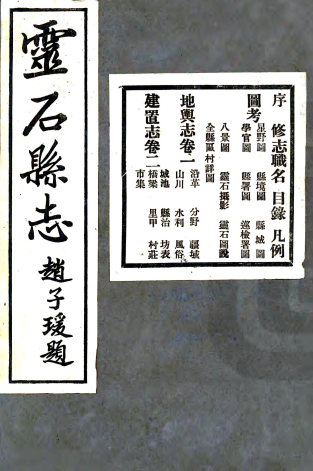 靈石縣志
趙子瑗題
序 修志職名 目錄 凡例
圖考
星野圖 縣境圖 縣城圖
學官圖 縣署圖 巡檢署圖
八景圖 靈石攝影 靈石圖說
全縣區村詳圖
地輿志卷一
沿革 分野 疆域
山川 水利 風俗
建置志卷二
城池 縣治 坊表
橋梁 里甲 村莊
市集